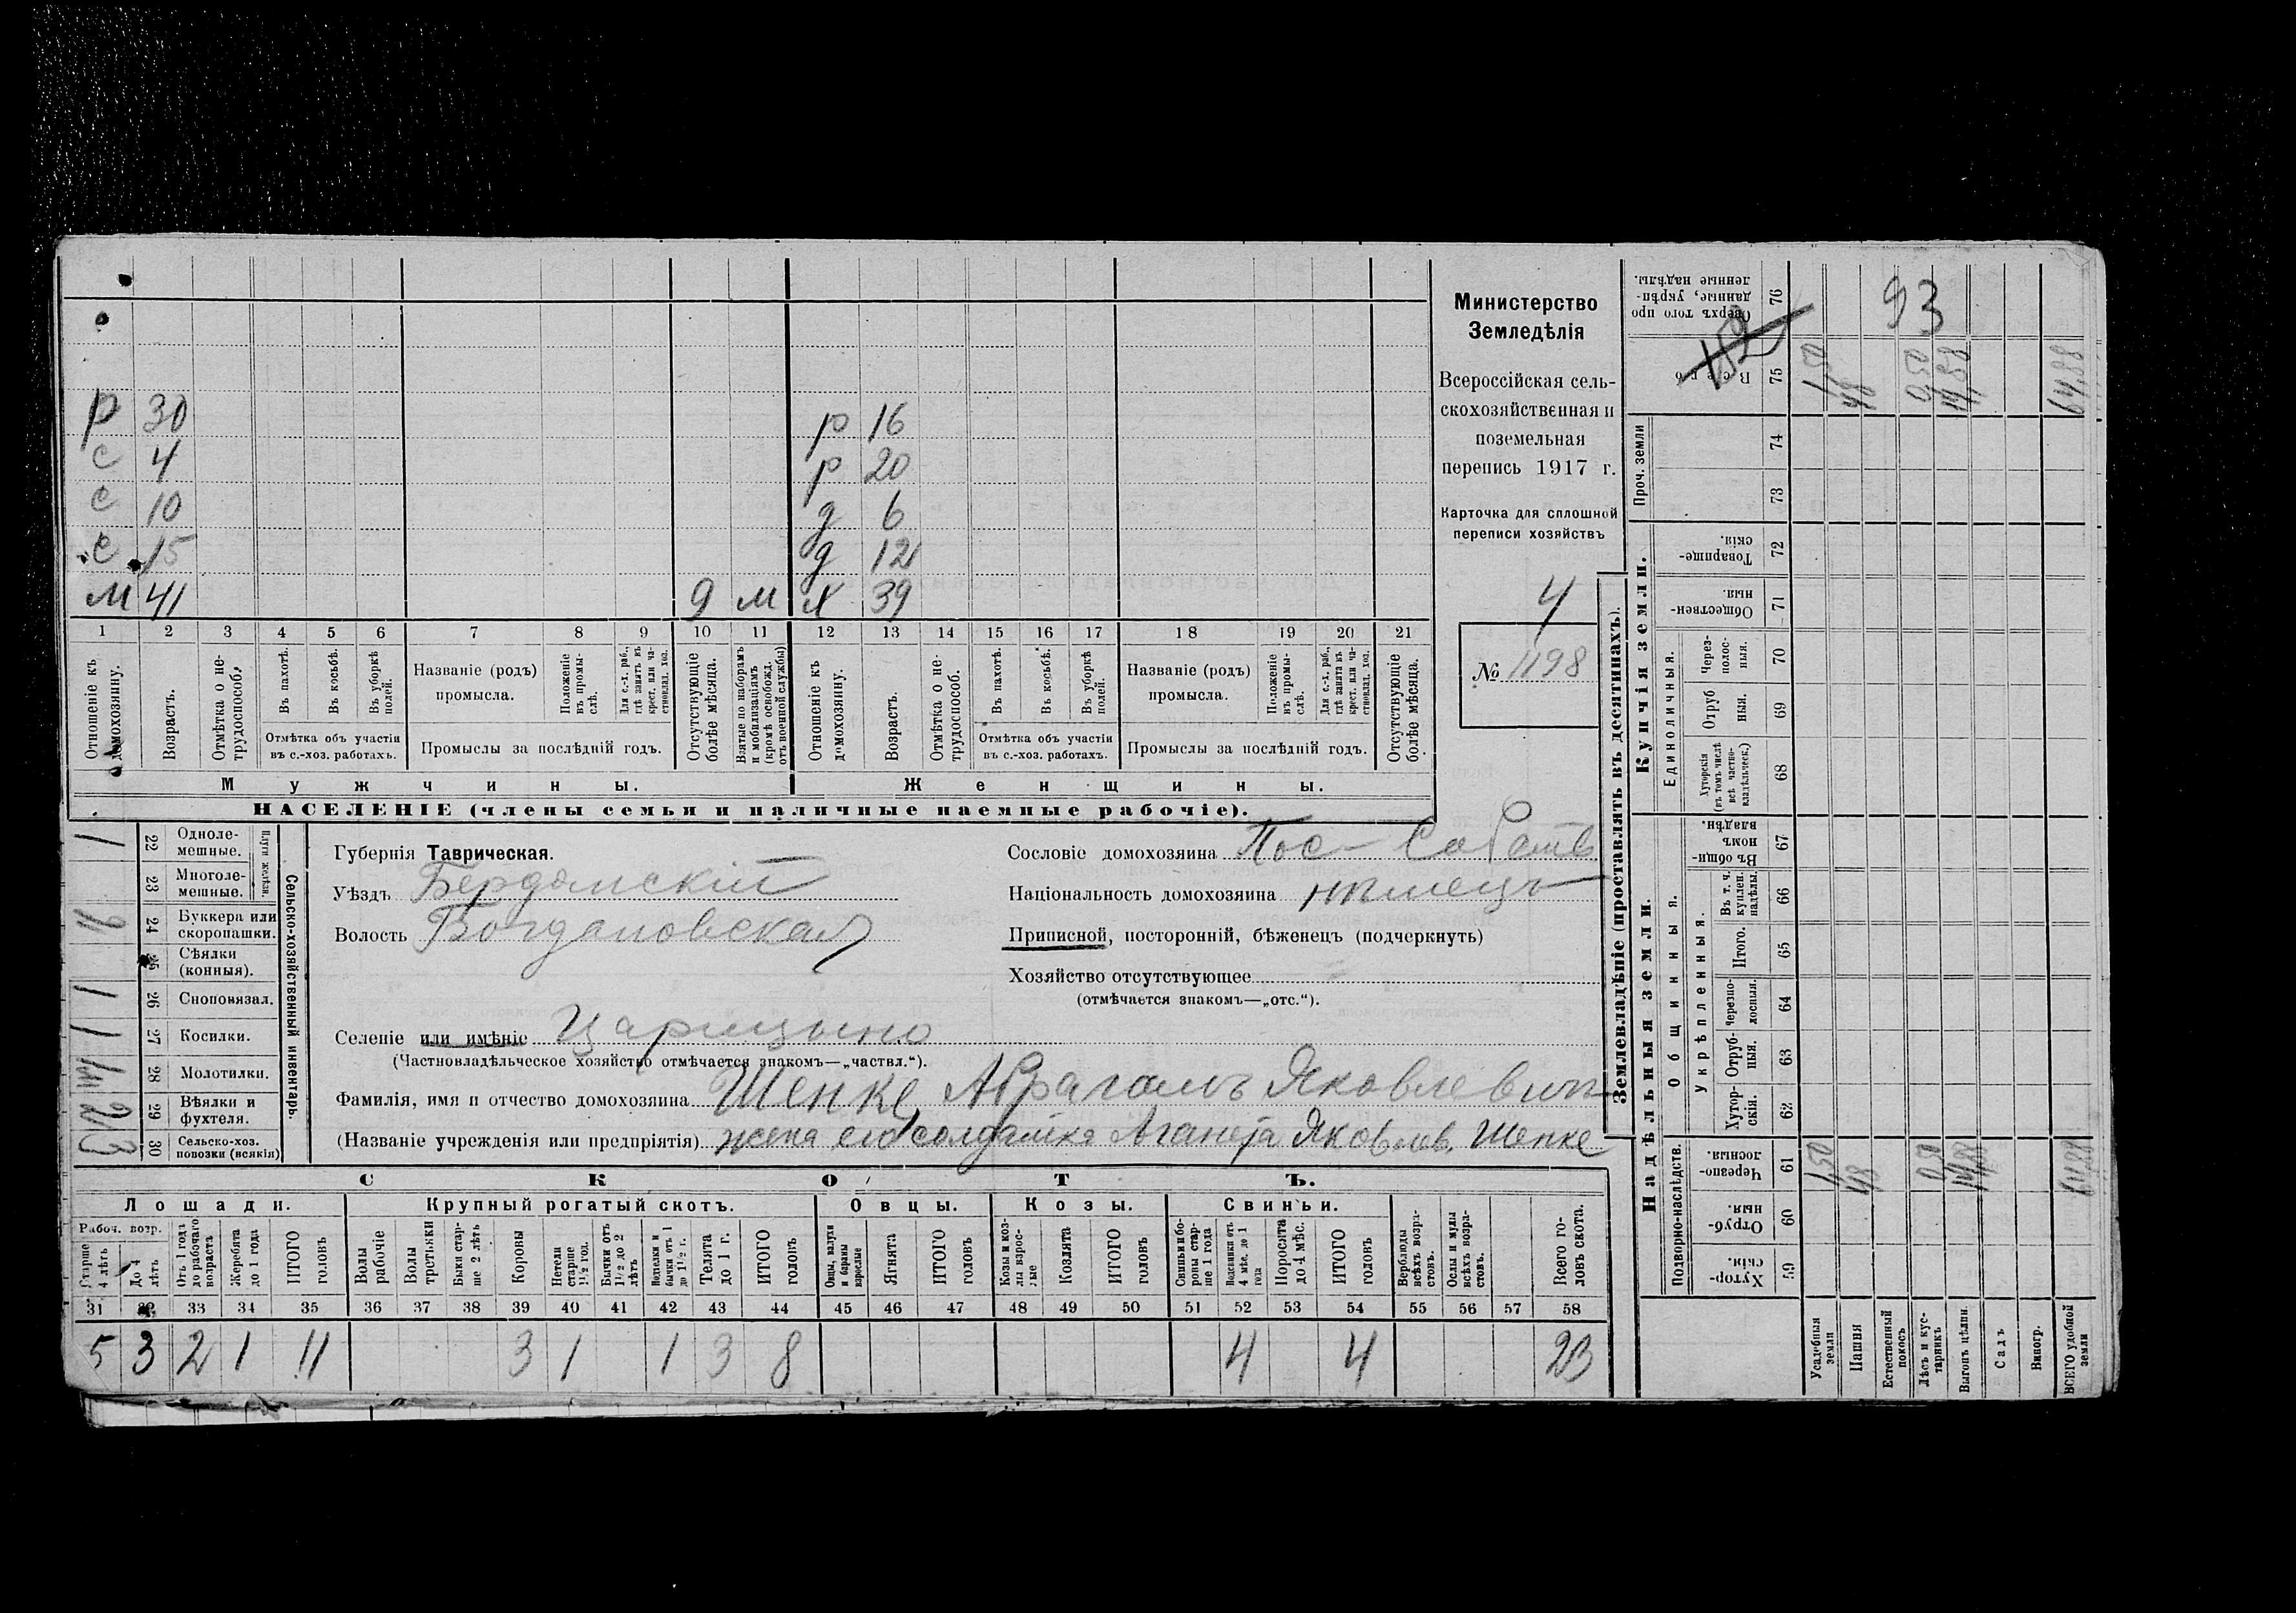 Министерство
Земледѣлія
Всероссійская сель-
скохозяйственная и
поземельная
перепись 1917 г.
Карточка для сплошной
переписи хозяйствъ
4
№ 1198
р 30 р 16
с 4 р 20
с 10 д 6
с 15 д 12
м 41 9 м х 39
1 2 3 4 5 6 7 8 9 10 11 12 13 14 15 16 17 18 19 20 21
Отношеніе къ домохозяину.
Возрастъ.
Отмѣтка о не-трудоспособ.
Въ пахотѣ.
Въ косьбѣ.
Въ уборкѣ полей.
Отмѣтка объ участіи
въ с.-хоз. работахъ.
Названіе (родъ)
промысла.
Положеніе въ промы-слѣ.
Для с.-х. раб., гдѣ занятъ въ крест. или ча-стновлад. хоз.
Промыслы за послѣдній годъ.
Отсутствующіе болѣе мѣсяца.
Взятые по наборамъ и мобилизаціямъ (кромѣ освобожд. отъ военной службы)
Отношеніе къ домохозяину.
Возрастъ.
Отмѣтка о не-трудоспособ.
Въ пахотѣ.
Въ косьбѣ.
Въ уборкѣ полей.
Отмѣтка объ участіи
въ с.-хоз. работахъ.
Названіе (родъ)
промысла.
Положеніе въ промы-слѣ.
Для с.-х. раб., гдѣ занятъ въ крест. или ча-стновлад. хоз.
Промыслы за послѣдній годъ.
Отсутствующіе болѣе мѣсяца.
Мужчины. Женщины.
НАСЕЛЕНІЕ (члены семьи и наличные наемные рабочіе).
Сельско-хозяйственный инвентарь.
Плуги желѣзн.
1 22 Одноле-мешные.
23 Многоле-мешные.
24 Буккера или скоропашки.
25 Сѣялки (конныя).
1 26 Сноповязал.
1 27 Косилки.
28 Молотилки.
2 29 Вѣялки и фухтеля.
3 30 Сельско-хоз. повозки (всякія)
Губернія Таврическая.
Уѣздъ Бердянскій
Волость Богдановская
Сословіе домохозяина Пос-Собств
Національность домохозяина нѣмецъ
Приписной, посторонній, бѣженецъ (подчеркнуть)
Хозяйство отсутствующее
(отмѣчается знакомъ—„отс.“).
Селеніе или имѣніе Царицыно
(Частновладѣльческое хозяйство отмѣчается знакомъ—„частвл.“).
Фамилія, имя и отчество домохозяина Шенке Абрагамъ Яковлевич
(Названіе учрежденія или предпріятія) жена его солдатка Аганета Яковлев. Шенке
СКОТЪ.
Лошади. Крупный рогатый скотъ. Овцы. Козы. Свиньи.
Рабоч. возр.
Старше 4 лѣтъ
До 4 лѣтъ
Отъ 1 года до рабочаго возраста
Жеребята до 1 года
ИТОГО головъ
Волы рабочіе
Волы третьяки
Быки стар-ше 2 лѣтъ
Коровы
Нетели старше 1½ год.
Бычки отъ 1½ до 2 лѣтъ
Нетелки и бычки отъ 1 до 1½ г.
Телята до 1 г.
ИТОГО головъ
Овцы, валухи и бараны взрослые
Ягнята
ИТОГО головъ
Козы и коз-лы взрос-лые
Козлята
ИТОГО головъ
Свиньи и бо-ровы стар-ше 1 года
Подсвинки отъ 4 мѣс. до 1 года
Поросята до 4 мѣс.
ИТОГО головъ
Верблюды всѣхъ возра-стовъ.
Ослы и мулы всѣхъ возра-стовъ.
Всего го-ловъ скота.
31 32 33 34 35 36 37 38 39 40 41 42 43 44 45 46 47 48 49 50 51 52 53 54 55 56 57 58
5 3 2 1 11 3 1 1 3 8 4 4 23
Землевладѣніе (проставлять въ десятинахъ).
Надѣльныя земли. Купчія земли.
Подворно-наслѣдств.
Общинныя.
Укрѣпленныя.
Единоличныя.
Проч. земли
Хутор-скія. 59
Отруб-ныя. 60
Черезпо-лосныя. 61
Хутор-скія. 62
Отруб-ныя. 63
Черезпо-лосныя. 64
Итого. 65
Въ т. ч. куплен. надѣлы. 66
Въ общи-номъ владѣн. 67
Хуторскія (въ томъ числѣ всѣ частно-владѣльческ.) 68
Отруб ныя. 69
Через-полос-ныя. 70
Обществен-ныя. 71
Товарище-скія. 72
73
74
Всего 75
Сверхъ того про данные, укрѣп-ленные надѣлы. 76
93
152
1,50 48 0,50 14,88 64,88
1,50 48 0,50 14,88 64,88
Усадебныя земли
Пашня
Естественный покосъ
Лѣсъ и кус-тарникъ
Выгонъ цѣлин.
Садъ
Виногр.
ВСЕГО удобной земли